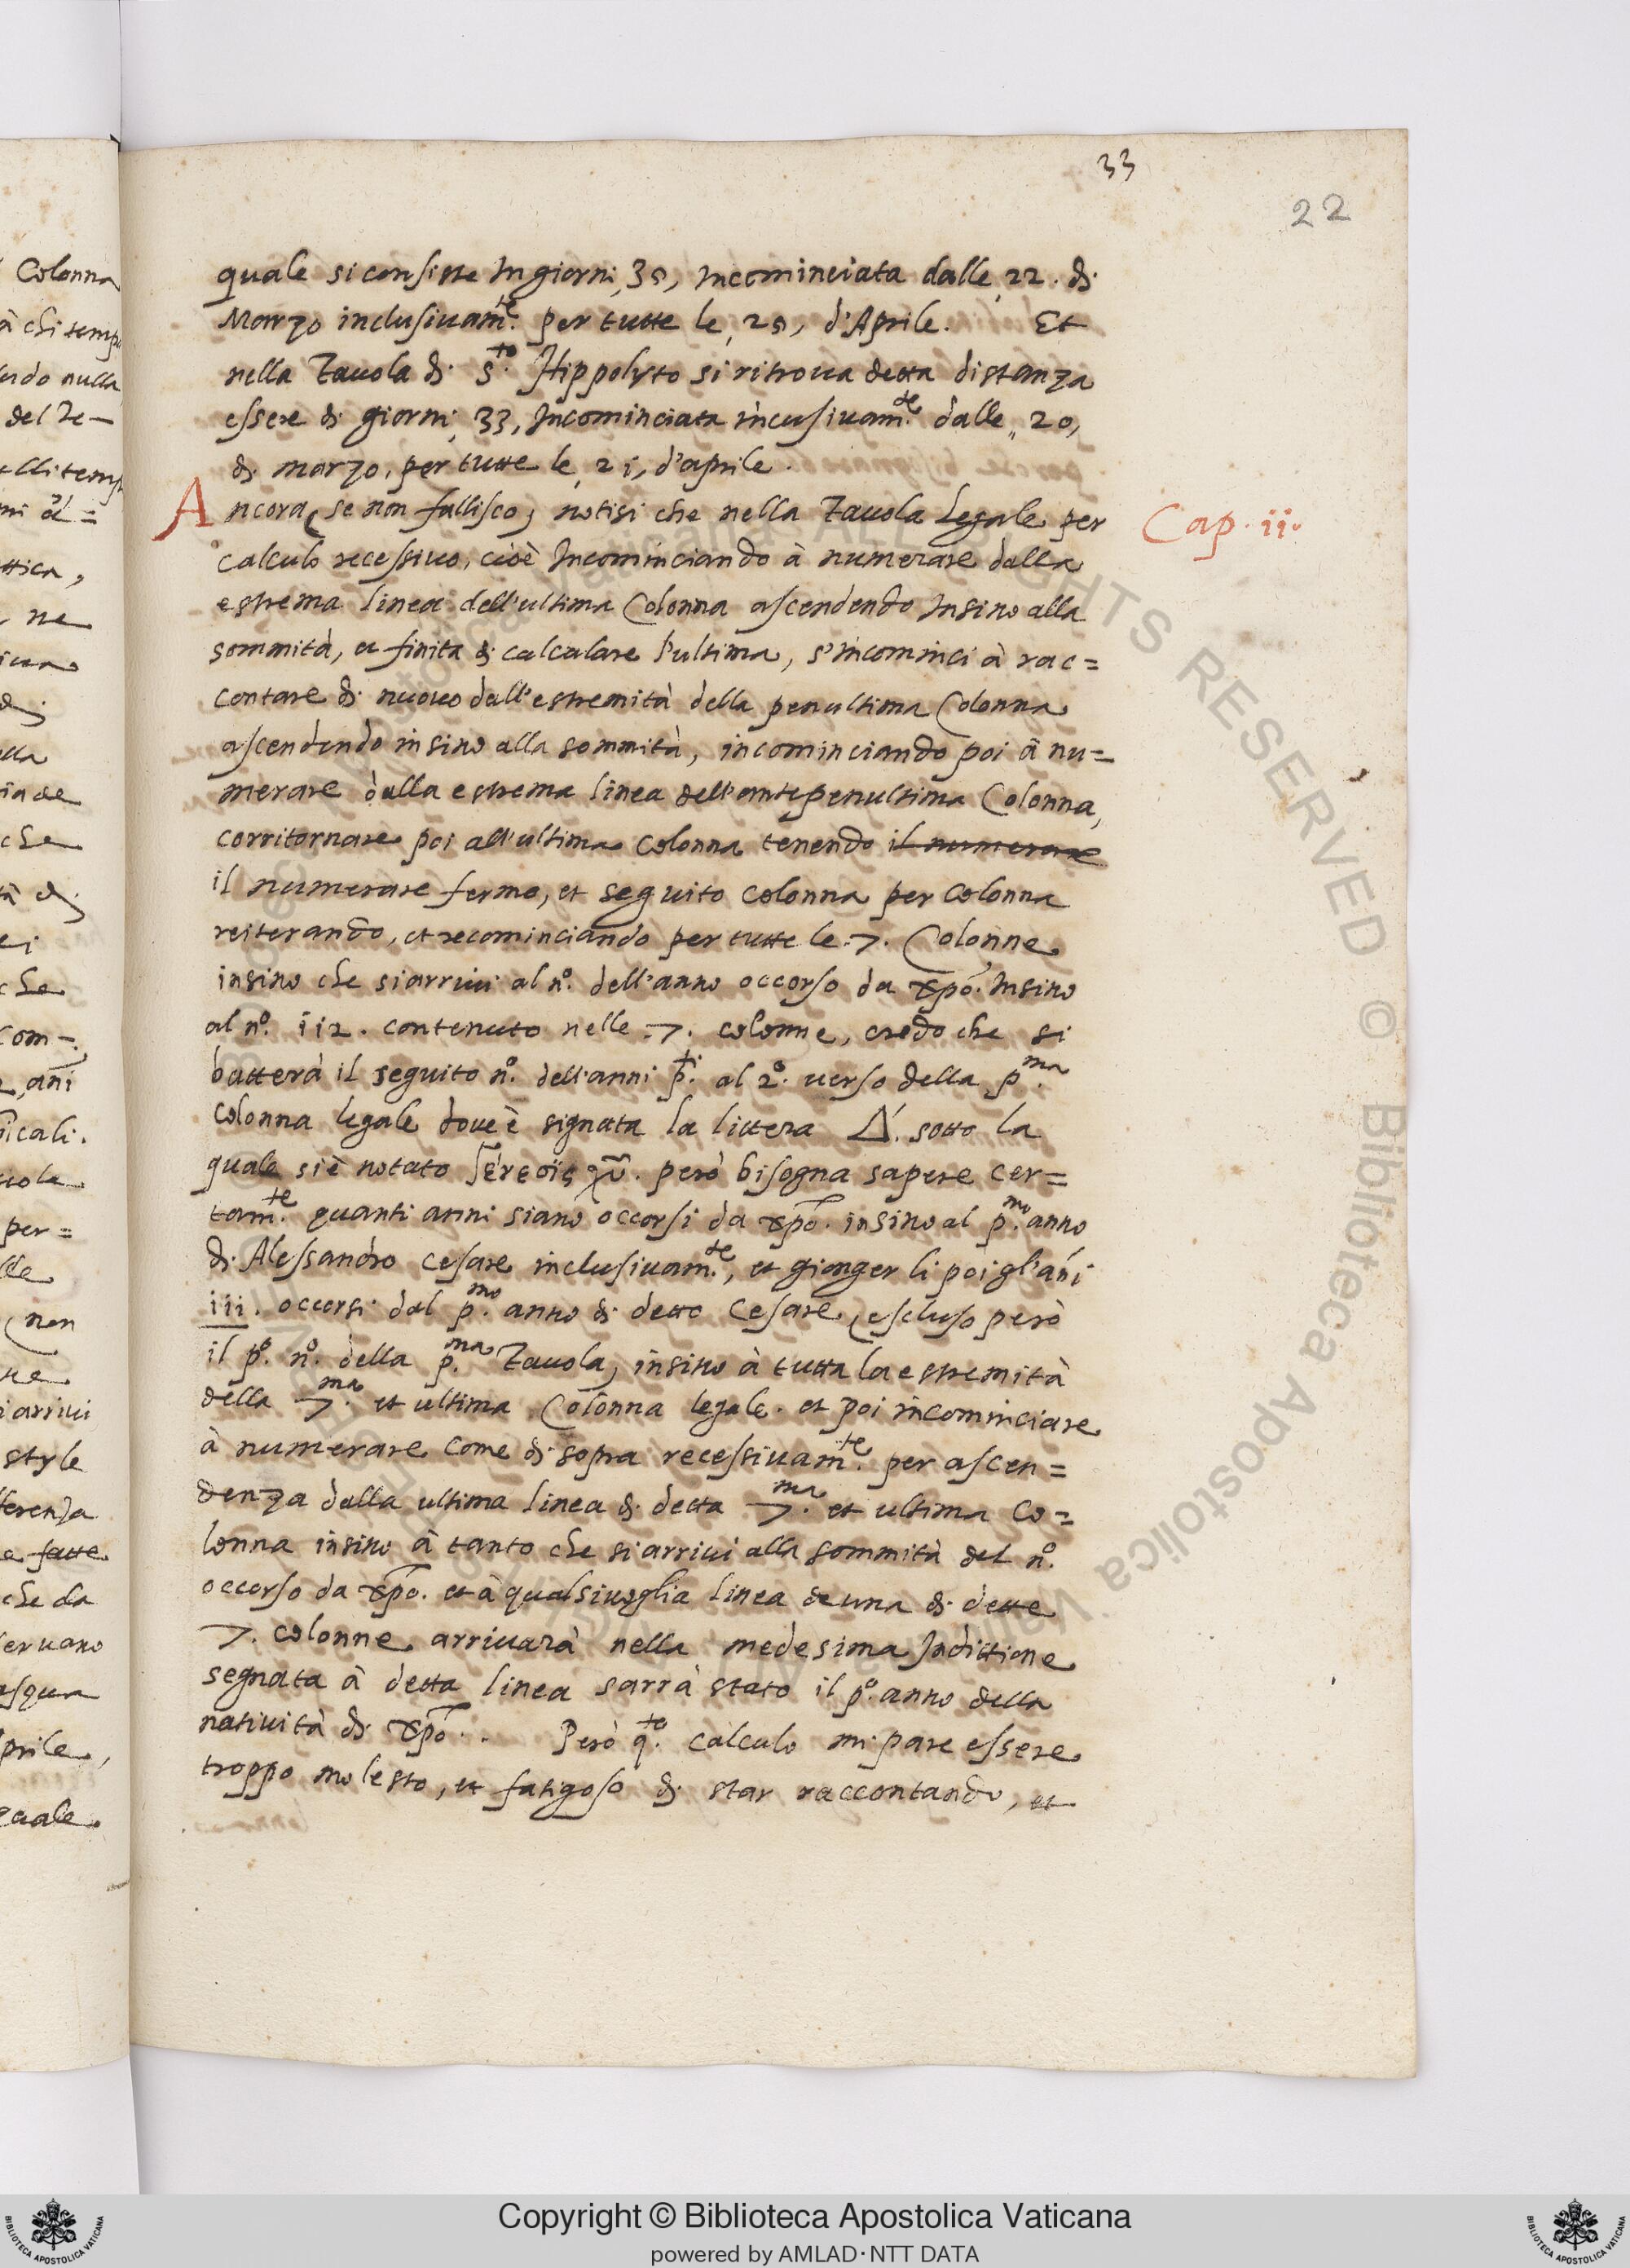 33
22
quale si consiste In giorni, 35, Incominciata dalle, 22. di
Marzo inclusivam.te per tutte le, 25, d'Aprile. Et
nella Tavola di S.to Hippolyto si ritrova detta distanza
essere di giorni, 33, Incominciata incusivam.te dalle, 20,
di marzo, per tutte le, 2i, d'aprile.
Ancora (se non fallisco) notisi che nella Tavola Legale per
Cap. ii.
calculo recessivo, cioè Incominciando à numerare dalla
estrema linea dell'ultima Colonna ascendendo Insino alla
sommità, et finita di calculare l'ultima, s'incominci à rac=
contare di nuovo dall'estremità della penultima Colonna
ascendendo insino alla sommità, incominciando poi à nu=
merare dalla estrema linea dell'antepenultima Colonna,
corritornare poi all'ultima colonna tenendo il numerare
il numerare fermo, et seguito colonna per colonna
reiterando, et recominciando per tutte le .7. Colonne
insino che si arrivi al nº. dell'anno occorso da xpõ. Insino
al nº. ii2. contenuto nelle .7. colonne, credo che si
batterà il seguito nº. dell'anni p.ti al 2º. verso della p.ma
colonna legale dove è signata la littera Δ. sotto la
quale si è notato γένεσις χυ̃. però bisogna sapere cer=
tam.te quanti anni siano occorsi da xpõ. insino al p.mo anno
di Alessandro cesare inclusivam.te, et gionger li poi gl'ani
iii. occorsi dal p.mo anno di detto Cesare, (escluso però
il pº. nº. della p.ma Tavola) insino à tutta la estremità
della 7.ma et ultima Colonna legale. et poi incominciare
à numerare come di sopra recessivam.te per ascen=
denza dalla ultima linea di detta 7.ma et ultima Co=
lonna insino à tanto che si arrivi alla sommità del nº.
occorso da xpõ. et à qualsivoglia linea de una di dette
7. colonne arrivarà nella medesima Indittione
segnata à detta linea sarrà stato il pº. anno della
natività di xpõ. Però q.to calculo mi pare essere
troppo molesto, et fatigoso di star raccontando, et
Copyright © Biblioteca Apostolica Vaticana
powered by AMLAD·NTT DATA